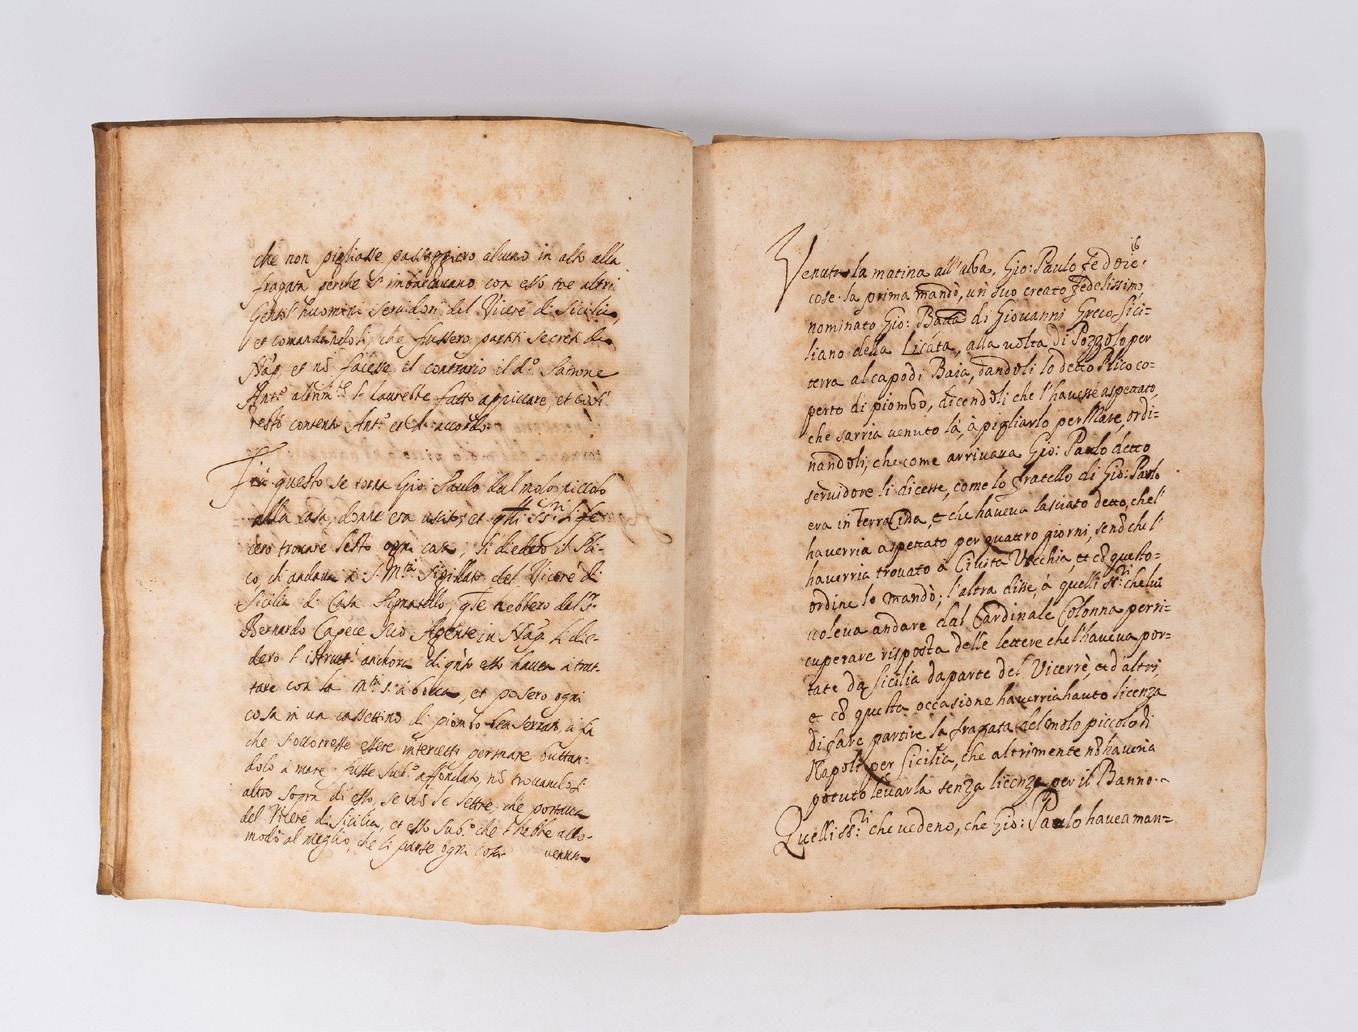 che non pigliasse passaggiero alcuno in alto alla
fragata perche s'imbarcavano con esso tre altri
Gentil'huomini servidori del Viceré di Sicilia,
et comandandoli, che fussero partiti secreti da
Nap. et nō facesse il contrario il d.º Patrone
Ant.º altrim.te lo faurebbe fatto appiccare, et così
restò content Ant.º et d'accordo.
questo se torna Gio: Paulo dal molo piccolo
alla casa, donde era uscito, et
cero trovare lesto ogni cosa, li diedero il Pli-
co, ch'andava a S. M.tà sigillato del Vicere di
Sicilia di Casa Pignatello, q̄le hebbero dal S.r
Bernardo Capece suo Agente in Nap. li die-
dero l' anchora di q̄nto esso havea a trat-
tare con la M.tà S.a a bocca, et posero ogni
cosa in un cassettino di piombo ben serrato, a fin
che s'occorresse essere intercetti per mare buttan-
dolo a mare fusse sub.º affondato, nō trovandosi
altro sopra di esso, se nō le lettere che portava
del Vicerè di Sicilia, et esso sub.º che l'hebbe acco-
modò al meglio, che li parse ogni cosa
venuta
16
Venuta la matina all'alva, Gio: Paulo
cose la prima mandò, un suo creato fedelissimo
nominato Gio: Batta di Giovanni Greco Sici=
liano della Licata, alla volta di Pozzolo per
terra al capo di Baia, dandoli lo detto Plico co=
perto di piombo, dicendoli che l'havesse aspettato,
che sarria venuto là, à pigliarlo per Mare, ordi=
nandoli, che come arrivava Gio: Paulo detto
servidore li dicesse, come lo fratello di Gio: Paulo
era in Terracina, e che haveva lasciato detto, che l'
haverria aspettato per quattro giorni, senò che l'
haverria trovato à Civita Vecchia, et cō questo=
ordine lo mandò; l'altra disse, à quelli SS.ri che lui
voleva andare dal Cardinale Colonna per ri=
cuperare risposta delle lettere che l'haveva por=
tate da Sicilia da parte del Vicerrè, et d'altri,
et cō questa occasione haverria hauto licenza
di fare partire la fragata del molo piccolo di
Napoli per Sicilia, che altrimente nō haveria
potuto levarla senza licenza per il Banno.
Quelli SS.ri che vedeno, che Gio: Paulo havea man=